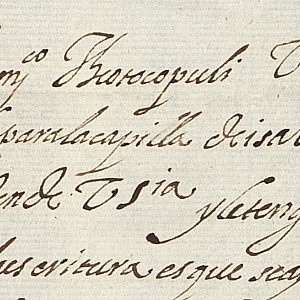 m^co Theotocopuli V
paralacapilla deisa
en de V sia
yleteng
escritura es que sea